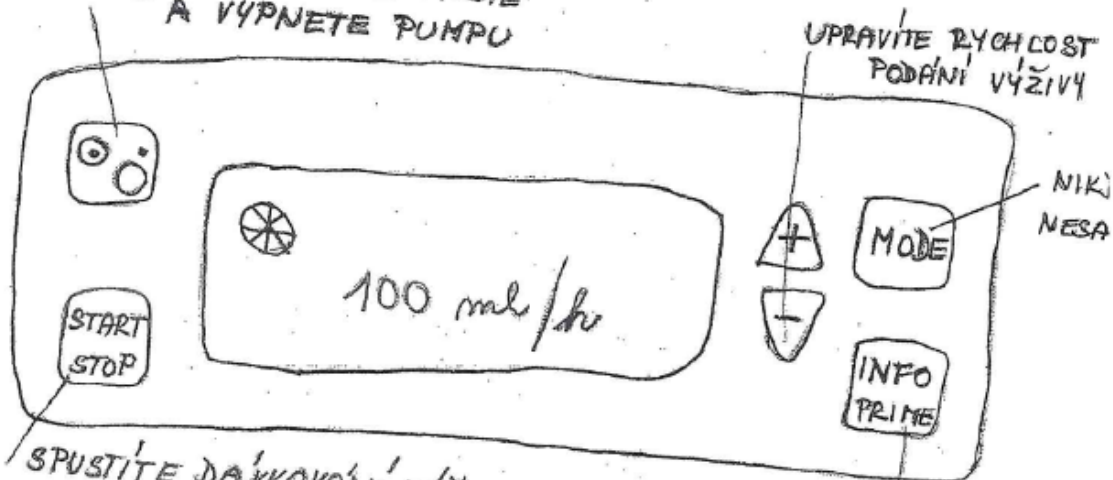 A VYPNETE PUMPU
UPRAVÍTE RYCHLOST
PODÁNÍ VÝŽIVY
MODE
100 ml/hr
+
-
START
STOP
INFO
PRIME
SPUSTÍTE